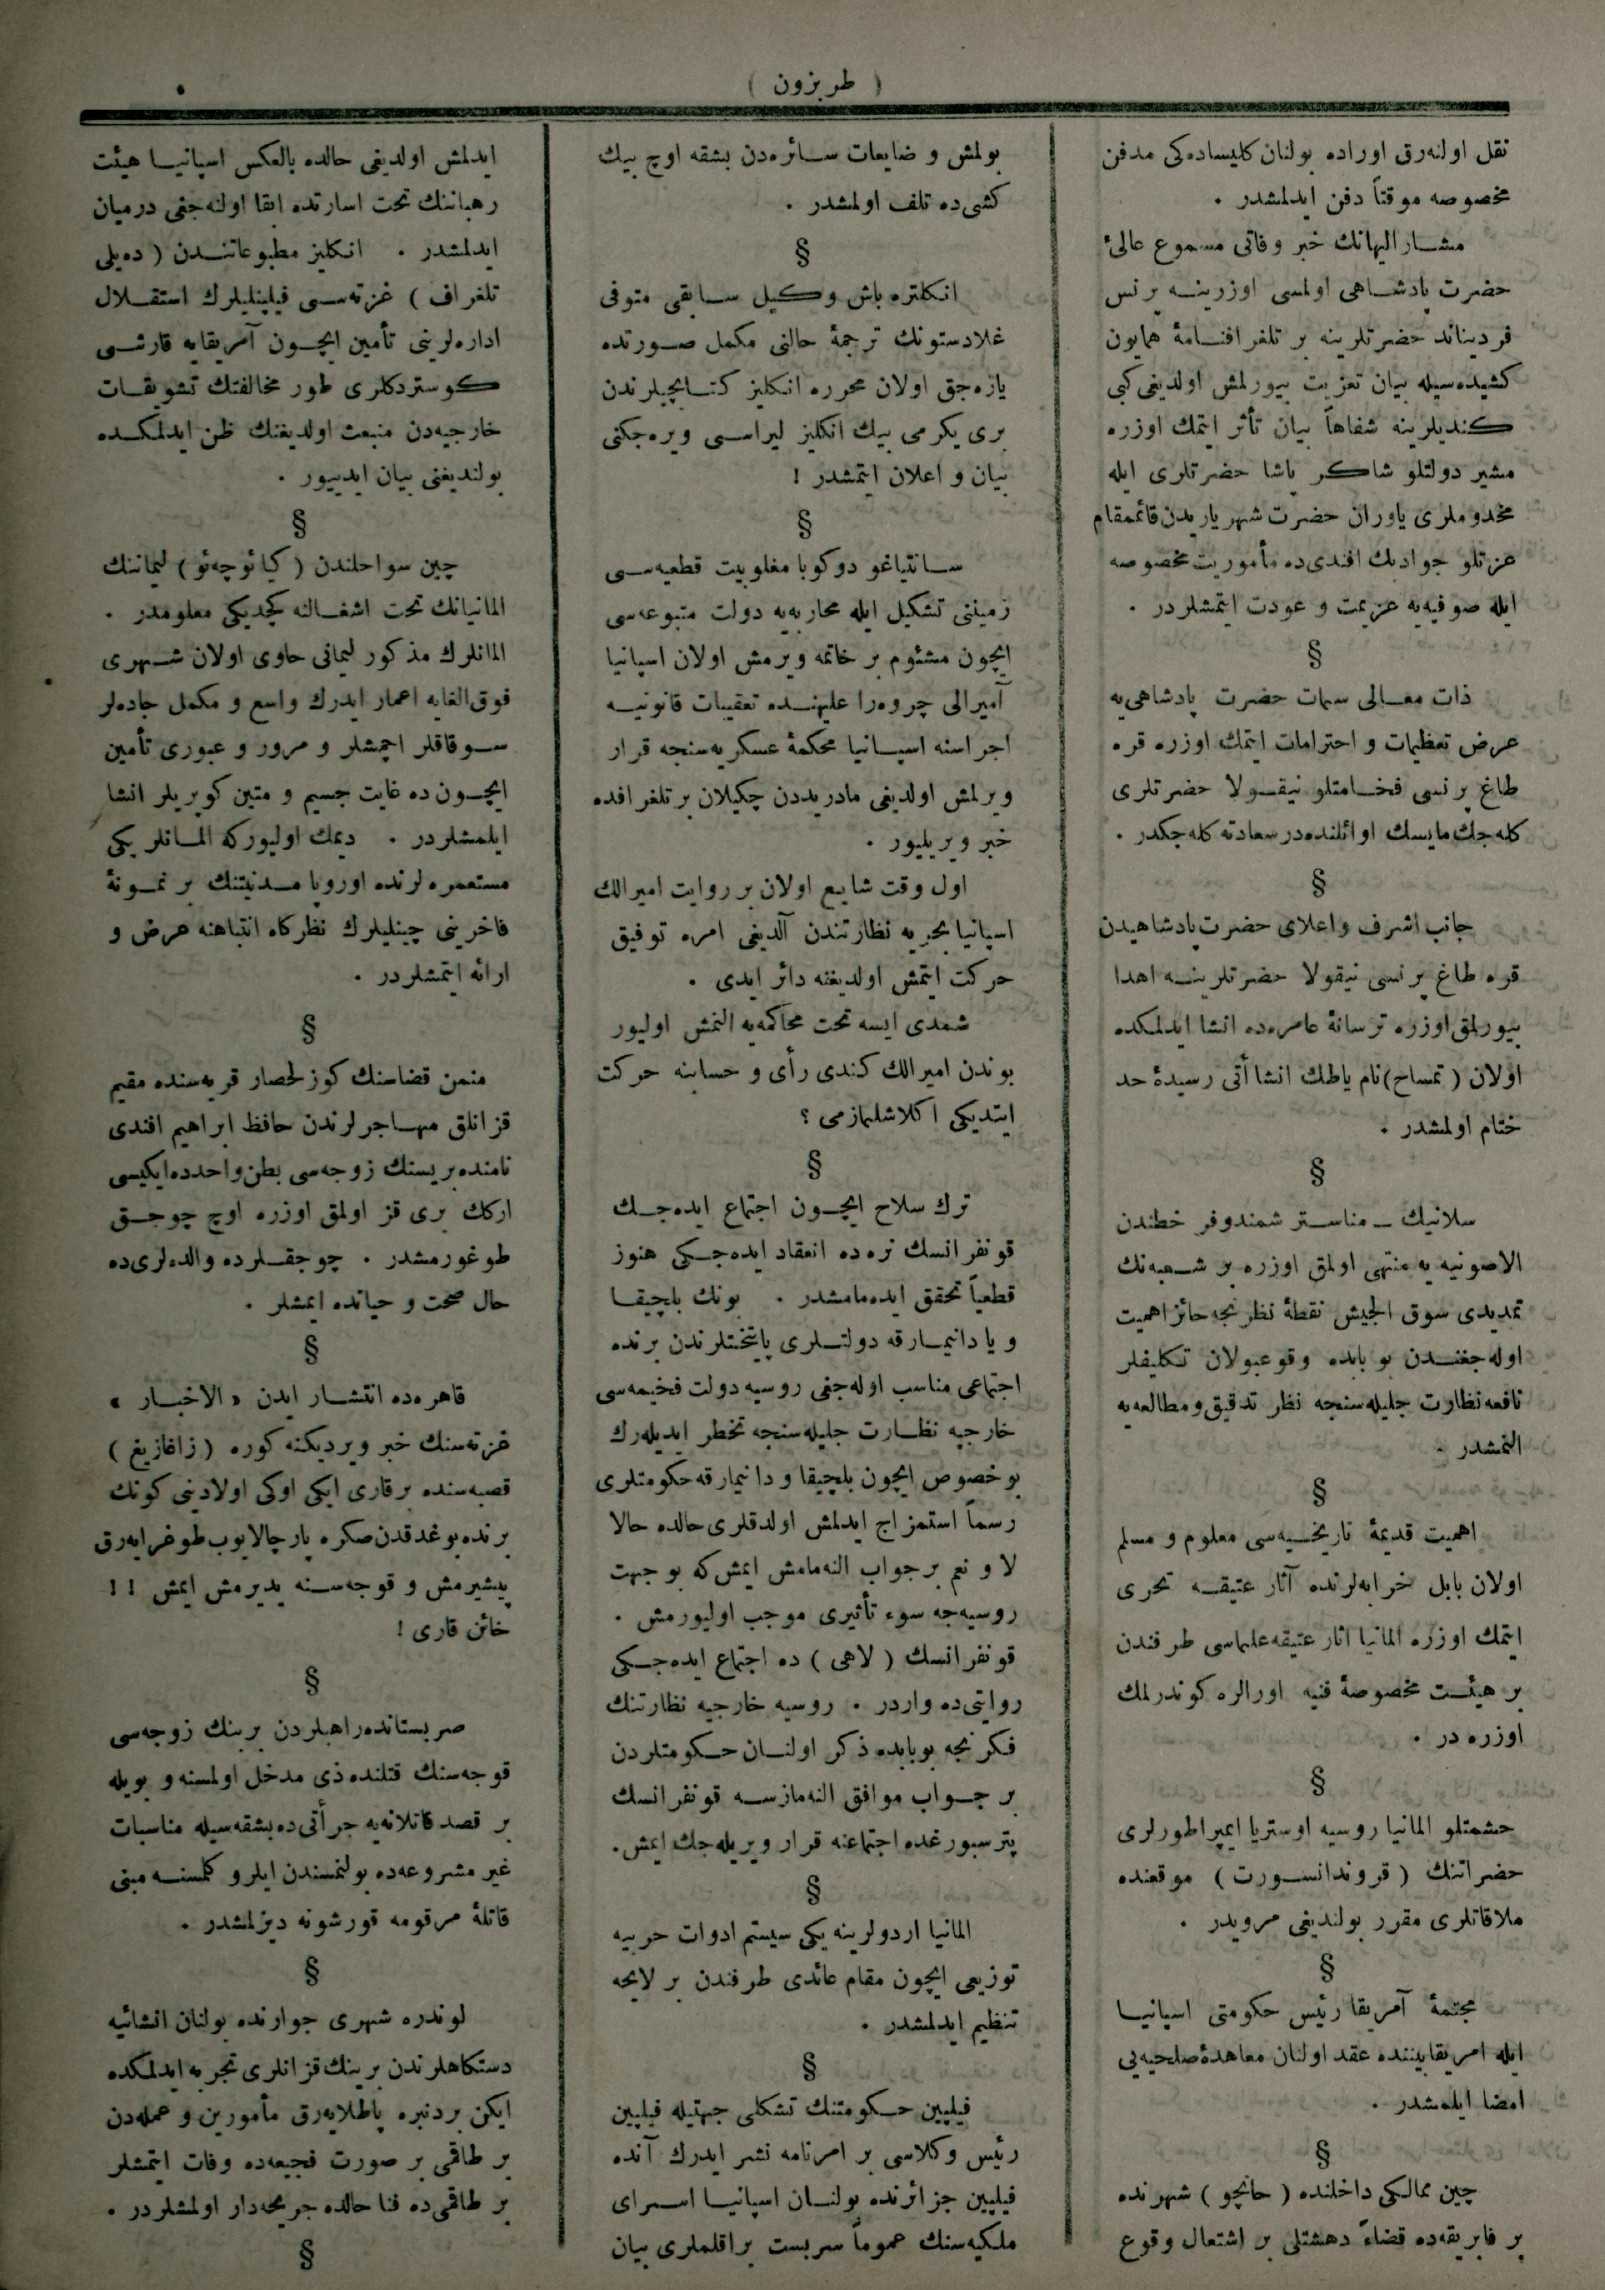 ( طربزون )
نقل اولنه‌رق اوراده بولنان كليساده‌كی مدفن
مخصوصه موقتاً دفن ايدلمشدر .
مشاراليهانك خبر وفاتی مسموع عالیٔ
حضرت پادشاهی اولمسی اوزرينه پرنس
فرديناند حضرتلرينه بر تلغرافنامهٔ همايون
كشيده‌سيله بيان تعزيت بيورلمش اولديغی كبی
كنديلرينه شفاهاً بيان تأثر ايتمك اوزره
مشير دولتلو شاكر پاشا حضرتلری ايله
مخدوملری ياوران حضرت شهرياريدن قائممقام
عزتلو جوادبك افندی‌ده مأموريت مخصوصه
ايله صوفيه‌يه عزيمت و عودت ايتمشلردر .
§
ذات معالی سمات حضرت پادشاهی‌يه
عرض تعظيمات و احترامات ايتمك اوزره قره
طاغ پرنسی فخامتلو نيقولا حضرتلری
كله‌جك مايسك اوائلنده درسعادته كله‌جكدر .
§
جانب اشرف و اعلای حضرت پادشاهيدن
قره طاغ پرنسی نيقولا حضرتلرينه اهدا
بيورلمق اوزره ترسانهٔ عامره‌ده انشا ايدلمكده
اولان ( تمساح ) نام ياطك انشاأتی رسيدهٔ حد
ختام اولمشدر .
§
سلانيك ـ مناستر شمندوفر خطندن
الاصونيه يه منتهی اولمق اوزره بر شعبه‌نك
تمديدی سوق الجيش نقطهٔ نظرنجه حائز اهميت
اوله‌جغندن بو بابده وقوعبولان تكليفلر
نافعه نظارت جليله‌سنجه نظر تدقيق و مطالعه‌يه
النمشدر .
§
اهميت قديمهٔ تاريخيه‌سی معلوم و مسلم
اولان بابل خرابه‌لرنده آثار عتيقه تحری
ايتمك اوزره المانيا اثار عتيقه علماسی طرفندن
بر هيئت مخصوصهٔ فنيه اورالره كوندرلمك
اوزره در .
§
حشمتلو المانيا روسيه اوستريا ايمپراطورلری
حضراتنك ( قروندانسورت ) موقعنده
ملاقاتلری مقرر بولنديغی مرويدر .
§
مجتمهٔ آمريقا رئيس حكومتی اسپانيا
ايله امريقا بيننده عقد اولنان معاهدهٔ صلحيه‌يی
امضا ايله‌مشدر .
§
چين ممالكی داخلنده ( حانچو ) شهرنده
بر فابريقه‌ده قضاءً دهشتلی بر اشتعال وقوع
بولمش و ضايعات سائره‌دن بشقه اوچ بيك
كشی‌ده تلف اولمشدر .
§
انكلتره باش وكيل سابقی متوفی
غلادستونك ترجمهٔ حالنی مكمل صورتده
يازه‌جق اولان محرره انكليز كتابجيلرندن
بری يكرمی بيك انكليز ليراسی ويره‌جكنی
بيان و اعلان ايتمشدر !
§
سانتياغو دوكوبا مغلوبيت قطعيه‌سی
زميننی تشكيل ايله محاربه‌يه دولت متبوعه‌سی
ايچون مشئوم بر خاتمه ويرمش اولان اسپانيا
آميرالی چروه‌را عليهنده تعقيبات قانونيه
اجراسنه اسپانيا محكمهٔ عسكريه‌سنجه قرار
ويرلمش اولديغی مادريددن چكيلان بر تلغرافده
خبر ويريليور .
اول وقت شايع اولان بر روايت اميرالك
اسپانيا بحريه نظارتندن آلديغی امره توفيق
حركت ايتمش اولديغنه دائر ايدی .
شمدی ايسه تحت محاكمه‌يه النمش اوليور
بوندن اميرالك كندی رأی و حسابنه حركت
ايتديكی اكلاشلمازمی ؟
§
ترك سلاح ايچون اجتماع ايده‌جك
قونفرانسك نره‌ده انعقاد ايده‌جكی هنوز
قطعياً تحقق ايده‌مامشدر . بونك بلچيقا
و يا دانيمارقه دولتلری پايتختلرندن برنده
اجتماعی مناسب اوله‌جغی روسيه دولت فخيمه‌سی
خارجيه نظارت جليله‌سنجه تخطر ايديله‌رك
بو خصوص ايچون بلچيقا و دانيمارقه حكومتلری
رسماً استمزاج ايدلمش اولدقلری حالده حالا
لا و نعم بر جواب النه‌مامش ايمش كه بو جهت
روسيه‌جه سوء تأثيری موجب اوليورمش .
قونفرانسك ( لاهی ) ده اجتماع ايده‌جكی
روايتی‌ده واردر . روسيه خارجيه نظارتنك
فكرنجه بو بابده ذكر اولنان حكومتلردن
بر جواب موافق النه‌مازسه قونفرانسك
پترسبورغده اجتماعنه قرار ويريله‌جك ايمش .
§
المانيا اردولرينه يكی سيستم ادوات حربيه
توزيعی ايچون مقام عائدی طرفندن بر لايحه
تنظيم ايدلمشدر .
§
فيليپين حكومتنك تشكلی جهتيله فيليپين
رئيس وكلاسی بر امرنامه نشر ايدرك آنده
فيليپين جزائرنده بولنان اسپانيا اسرای
ملكيه‌سنك عموماً سربست براقلملری بيان
ايدلمش اولديغی حالده بالعكس اسپانيا هيئت
رهباننك تحت اسارتده ابقا اولنه‌جغی درميان
ايدلمشدر . انكليز مطبوعاتندن ( ده‌يلی
تلغراف ) غزته‌سی فيليپنليلرك استقلال
اداره‌لرينی تأمين ايچون آمريقايه قارشی
كوستردكلری طور مخالفتك تشويقات
خارجيه‌دن منبعث اولديغنك ظن ايدلمكده
بولنديغنی بيان ايدييور .
§
چين سواحلندن ( كيائوچه‌ئو ) ليماننك
المانيانك تحت اشغالنه كچديكی معلومدر .
المانلرك مذكور ليمانی حاوی اولان شهری
فوق‌الغايه اعمار ايدرك واسع و مكمل جاده‌لر
سوقاقلر اچمشلر و مرور و عبوری تأمين
ايچون ده غايت جسيم و متين كوپريلر انشا
ايلمشلردر . ديمك اوليوركه المانلر يكی
مستعمره لرنده اوروپا مدنيتنك بر نمونهٔ
فاخرينی چينليلرك نظركاه انتباهنه عرض و
ارائه ايتمشلردر .
§
منمن قضاسنك كوزلحصار قريه‌سنده مقيم
قزانلق مهاجرلرندن حافظ ابراهيم افندی
نامنده بريسنك زوجه‌سی بطن واحدده ايكيسی
اركك بری قز اولمق اوزره اوچ چوجق
طوغورمشدر . چوجقلرده والده‌لری‌ده
حال صحت و حياتده ايمشلر .
§
قاهره‌ده انتشار ايدن « الاخبار »
غزته‌سنك خبر ويرديكنه كوره ( زاغازيغ )
قصبه‌سنده بر قاری ايكی اوكی اولادينی كونك
برنده بوغدقدن صكره پارچالايوب طوغرايه‌رق
پيشيرمش و قوجه‌سنه يديرمش ايمش ! !
خائن قاری !
§
صربستانده راهبلردن برينك زوجه‌سی
قوجه‌سنك قتلنده ذی مدخل اولمسنه و بويله
بر قصد قاتلانه‌يه جرأتی ده بشقه‌سيله مناسبات
غير مشروعه‌ده بولنمسندن ايلرو كلمسنه مبنی
قاتلهٔ مرقومه قورشونه ديزلمشدر .
§
لوندره شهری جوارنده بولنان انشائيه
دستكاهلرندن برينك قزانلری تجربه ايدلمكده
ايكن بردنبره پاطلايه‌رق مأمورين و عمله‌دن
بر طاقمی بر صورت فجيعه‌ده وفات ايتمشلر
بر طاقمی‌ده فنا حالده جريحه‌دار اولمشلردر .
§